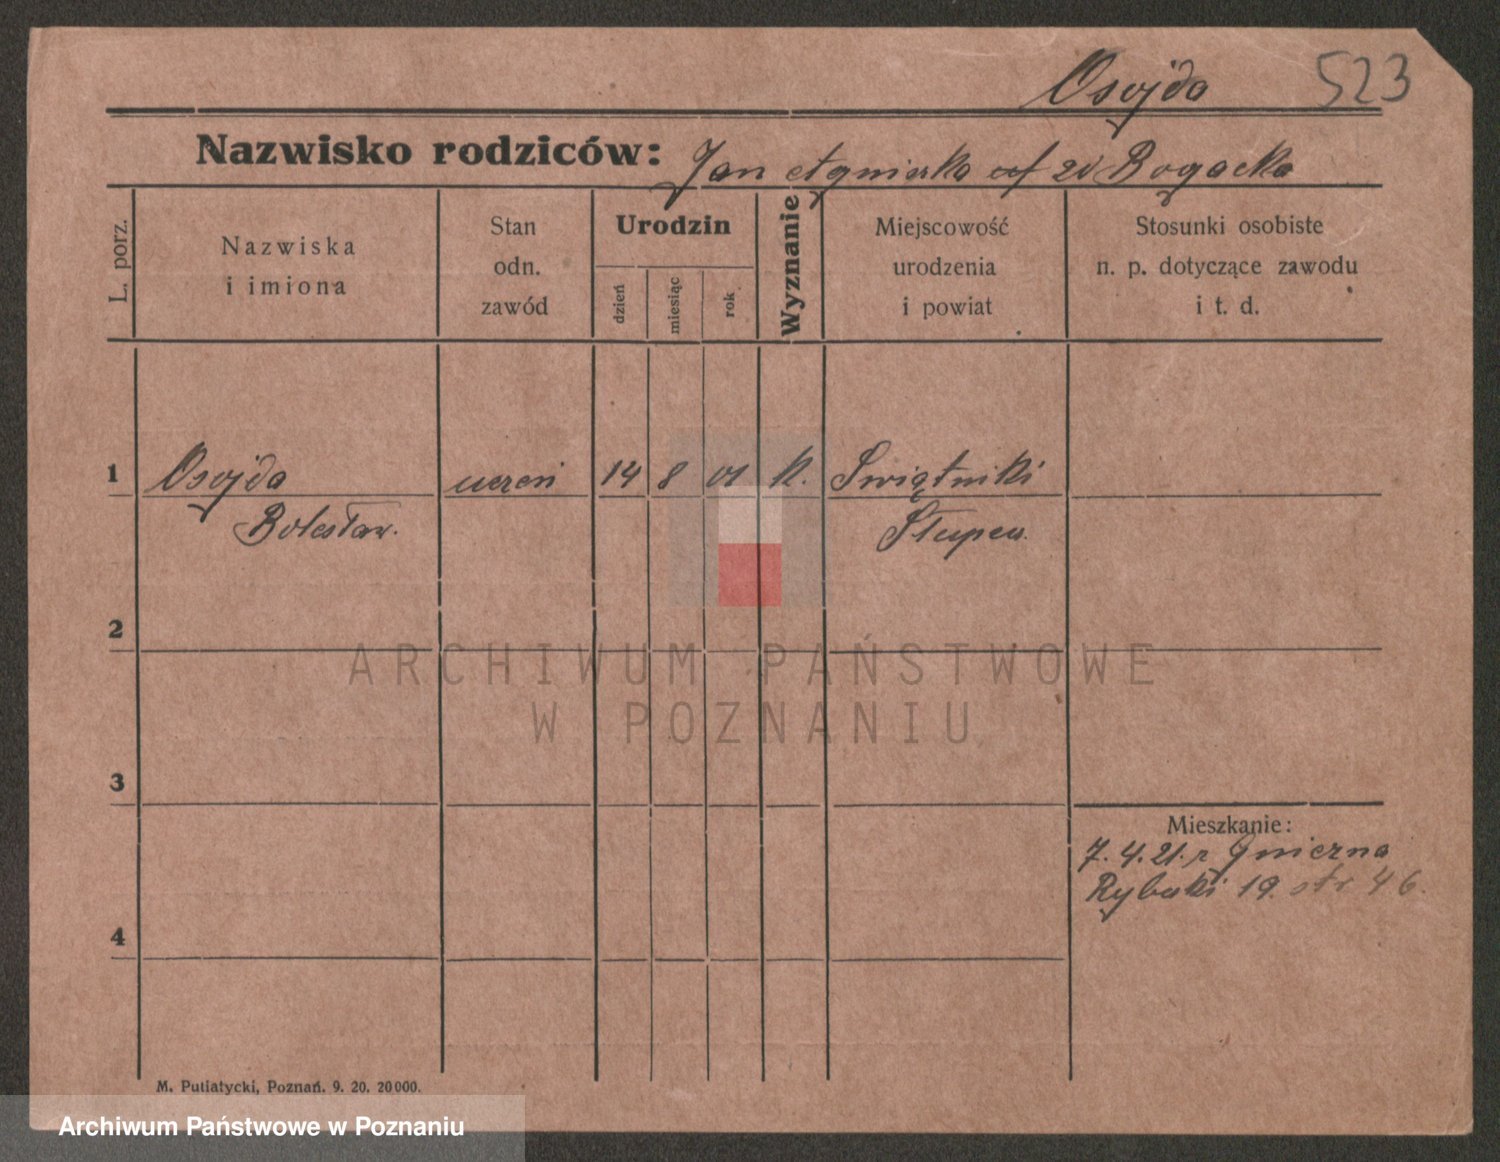 Osojda 523
Nazwisko rodziców: Jan Agnieszka zd Bogacka
L. porz.
Nazwiska
i imiona
Stan
odn.
zawód
Urodzin
dzień
miesiąc
rok
Wyznanie
Miejscowość
urodzenia
i powiat
Stosunki osobiste
n. p. dotyczące zawodu
i t. d.
1 Osojda uczeń 14 8 01 k. Swiątniki
Bolesław. Słupca.
2
ARCHIWUM PAŃSTWOWE
W POZNANIU
3
Mieszkanie:
7. 4. 21. z Gniezna
Rybaki 19. str. 46.
4
M. Putiatycki, Poznań. 9. 20. 20000.
Archiwum Państwowe w Poznaniu